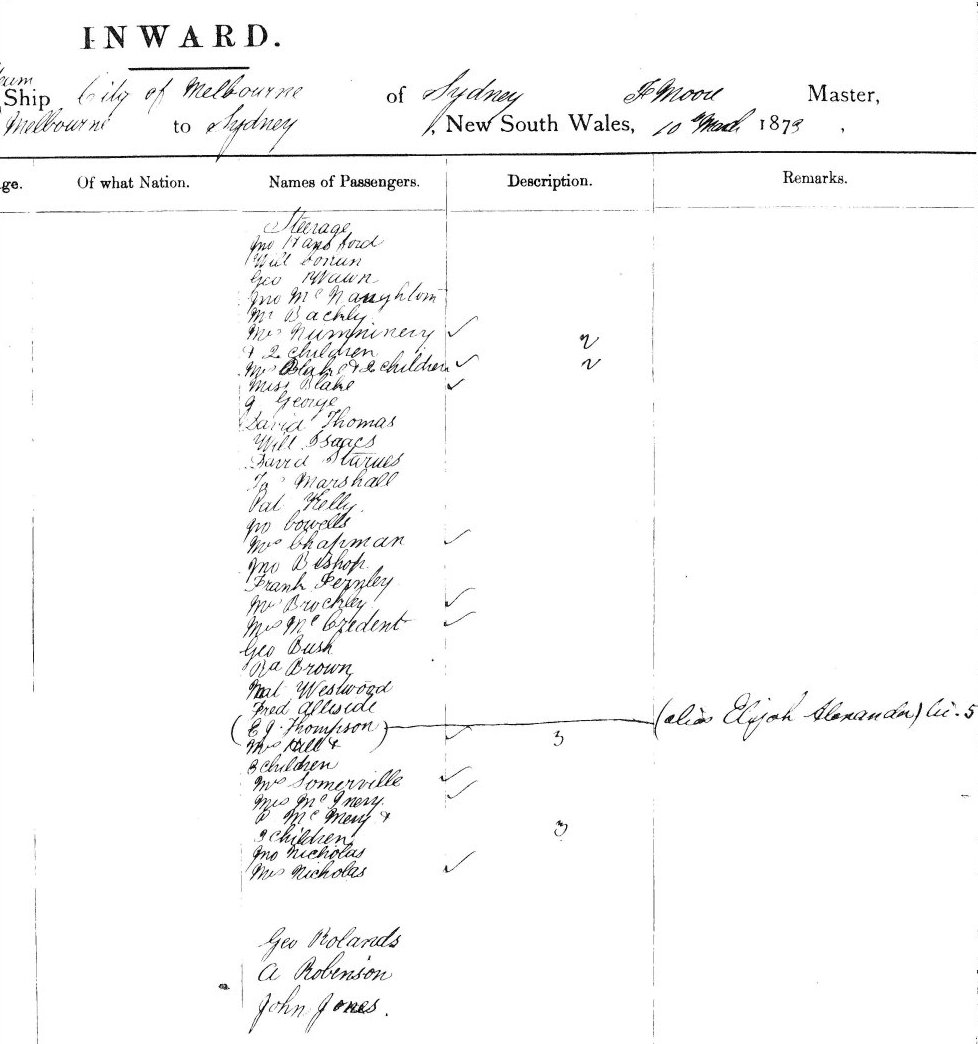 INWARD.
Ship City of Melbourne of Sydney F Moore Master,
Melbourne to Sydney, New South Wales, 10 March 1873,
ge. Of what Nation. Names of Passengers. Description. Remarks.
Steerage
Jno Hansford
Will
Geo
Jno McNaughton
Mr Bachly
Mrs Numminery ✓
& 2 children 2
Mrs Blake & 2 children ✓ 2
Miss Blake ✓
G George
David Thomas
Will Isaacs
David
Jas Marshall
Pat Kelly
Jno Cowells
Mrs Chapman ✓
Jno Bishop
Frank Fernley
Mrs Brockley ✓
Mrs Mc Credent ✓
Geo Bush
Brown
Nat Westwood
Fred
(E J Thompson) (alias Elijah Alexander)
Mrs Hill & ✓ 3
3 children
Mrs Somerville ✓
Mrs McInery ✓
McInery &
3 children 3
Jno Nicholas
Mrs Nicholas ✓
Geo Rolands
A Robinson
John Jones.